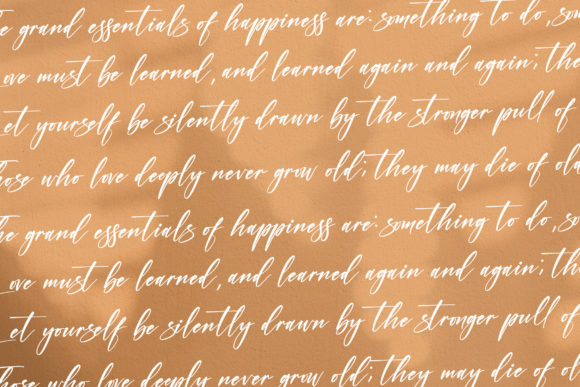 e grand essentials of happiness are: something to do, so
ove must be learned, and learned again and again; the
et yourself be silently drawn by the stronger pull of
hose who love deeply never grow old; they may die of old
he grand essentials of happiness are: something to do, so
Love must be learned, and learned again and again; th
Let yourself be silently drawn by the stronger pull of
hose who love deeply never grow old; they may die of old